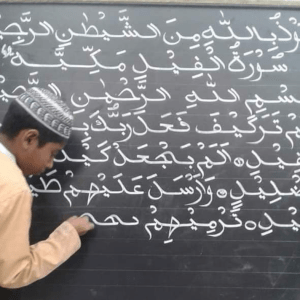 بِاللّٰهِ مِنَ الشَّيْطٰنِ الرَّجِيْ
سُوْرَةُ الْفِيْلِ مَكِّيَّةٌ
بِسْمِ اللّٰهِ الرَّحْمٰنِ الرَّحِيْ
تَرَكَيْفَ فَعَلَ رَبُّكَ
اَلَمْ يَجْعَلْ كَيْدَ
وَّاَرْسَلَ عَلَيْهِمْ طَيْ
تَرْمِيْهِمْ